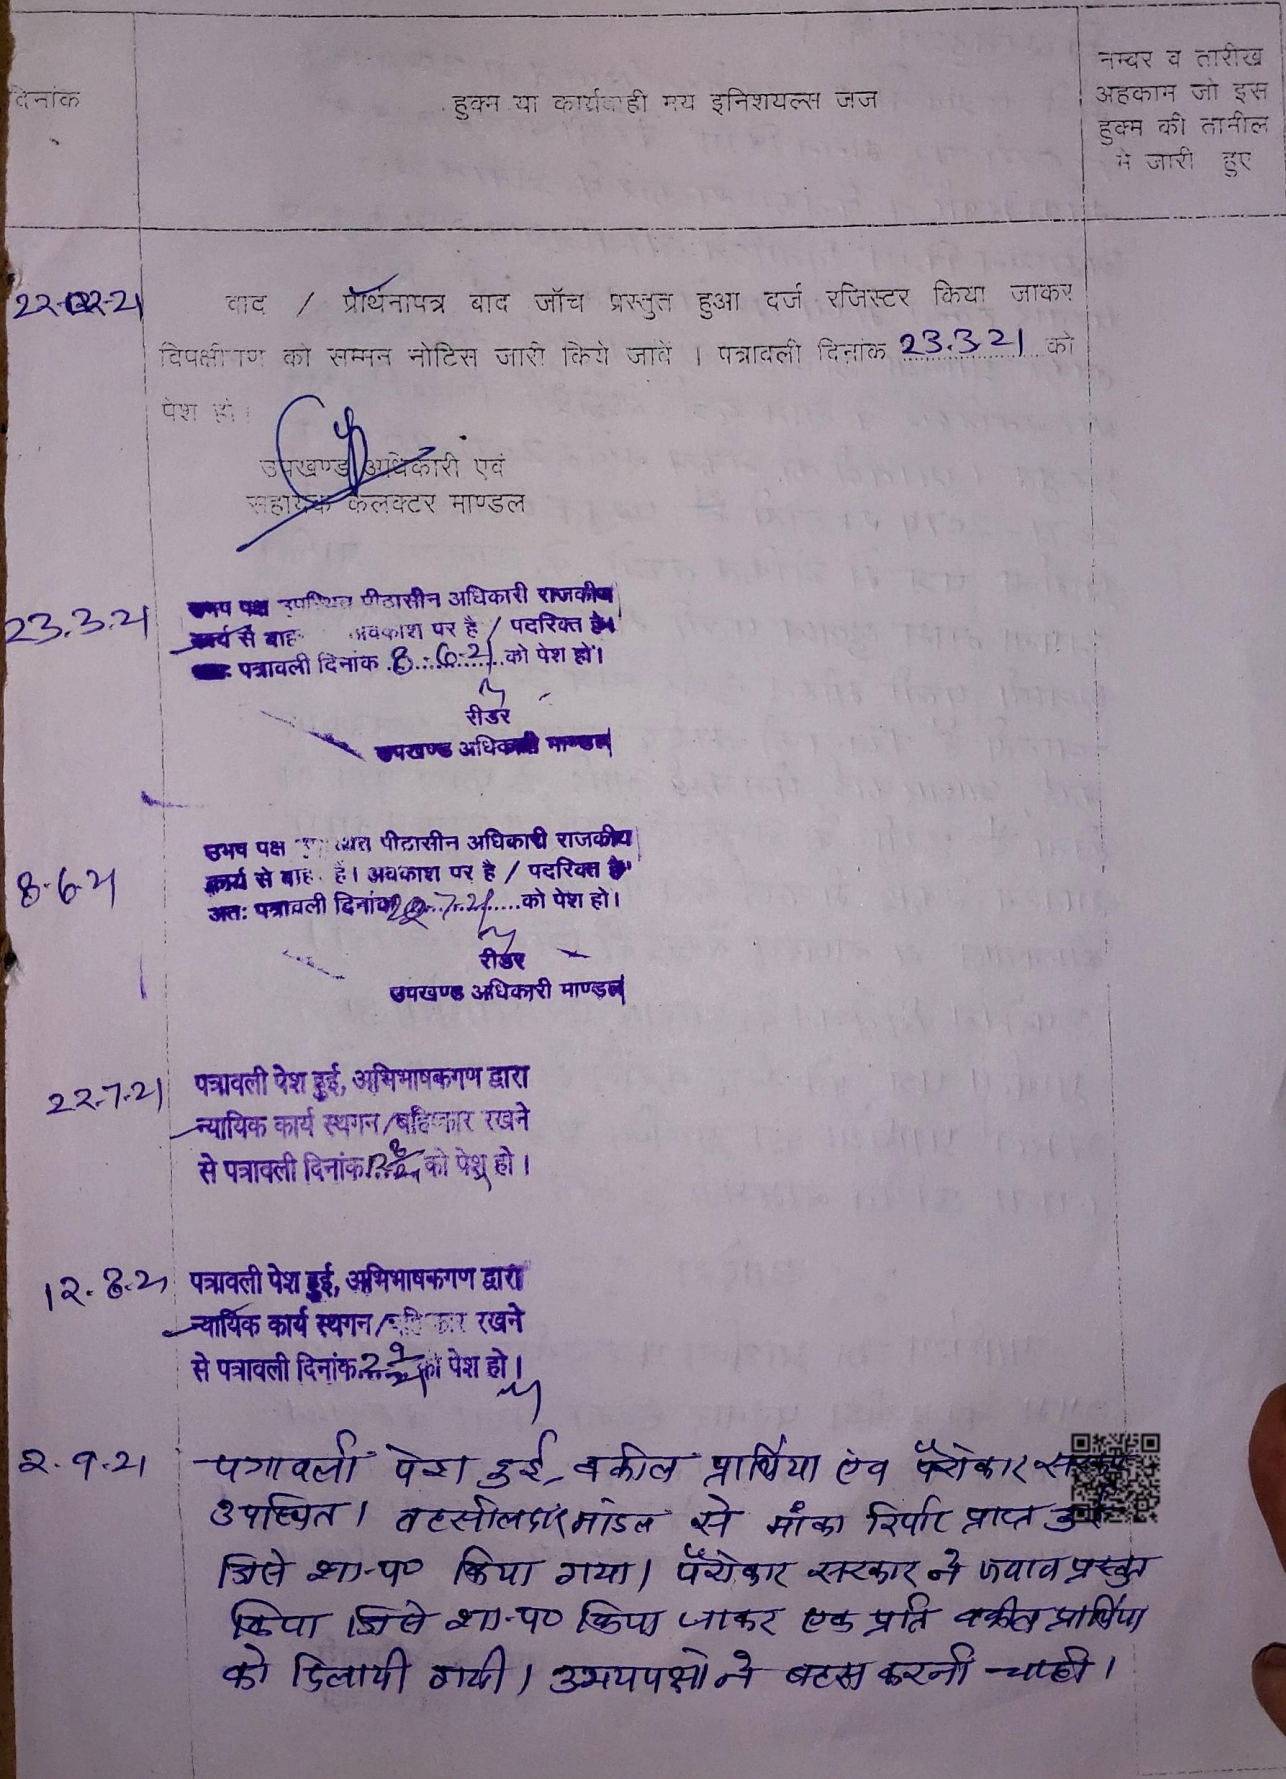 दिनांक
हुक्म या कार्यवाही मय इनिशयल्स जज
नम्वर व तारीख
अहकाम जो इस
हुक्म की तामील
मे जारी हुए
22-02-21
वाद / प्रार्थनापत्र बाद जॉच प्रस्तुत हुआ दर्ज रजिस्टर किया जाकर
विपक्षीगण को सम्मन नोटिस जारी किये जावे । पत्रावली दिनांक 23.3.21 को
पेश हो ।
उपखण्ड अधिकारी एवं
सहायक कलक्टर माण्डल
23.3.21
उभय पक्ष उपस्थित पीठासीन अधिकारी राजकीय
कार्य से बाहर अवकाश पर है / पदरिक्त है।
पत्रावली दिनांक 8-6-21 को पेश हो।
रीडर
उपखण्ड अधिकारी माण्डल
8-6-21
उभय पक्ष पीठासीन अधिकारी राजकीय
कार्य से बाहर है। अवकाश पर है / पदरिक्त है
अतः पत्रावली दिनांक 22-7-21 को पेश हो।
रीडर
उपखण्ड अधिकारी माण्डल
22-7-21
पत्रावली पेश हुई, अभिभाषकगण द्वारा
न्यायिक कार्य स्थगन/बहिष्कार रखने
से पत्रावली दिनांक को पेश हो ।
12-8-21
पत्रावली पेश हुई, अभिभाषकगण द्वारा
न्यायिक कार्य स्थगन/बहिष्कार रखने
से पत्रावली दिनांक 2 9/21 को पेश हो ।
2-9-21
पत्रावली पेश हुई, वकील प्रार्थिया एंव पैरोकार सरकार
उपस्थित। तहसीलदार मांडल से मौका रिर्पोट प्राप्त हुई
जिसे शा-प० किया गया। पैरोकार सरकार ने जवाव प्रस्तुत
किया जिसे शा-प० किया जाकर एक प्रति वकील प्रार्थिया
को दिलायी गयी। उभयपक्षो ने बहस करनी चाही।